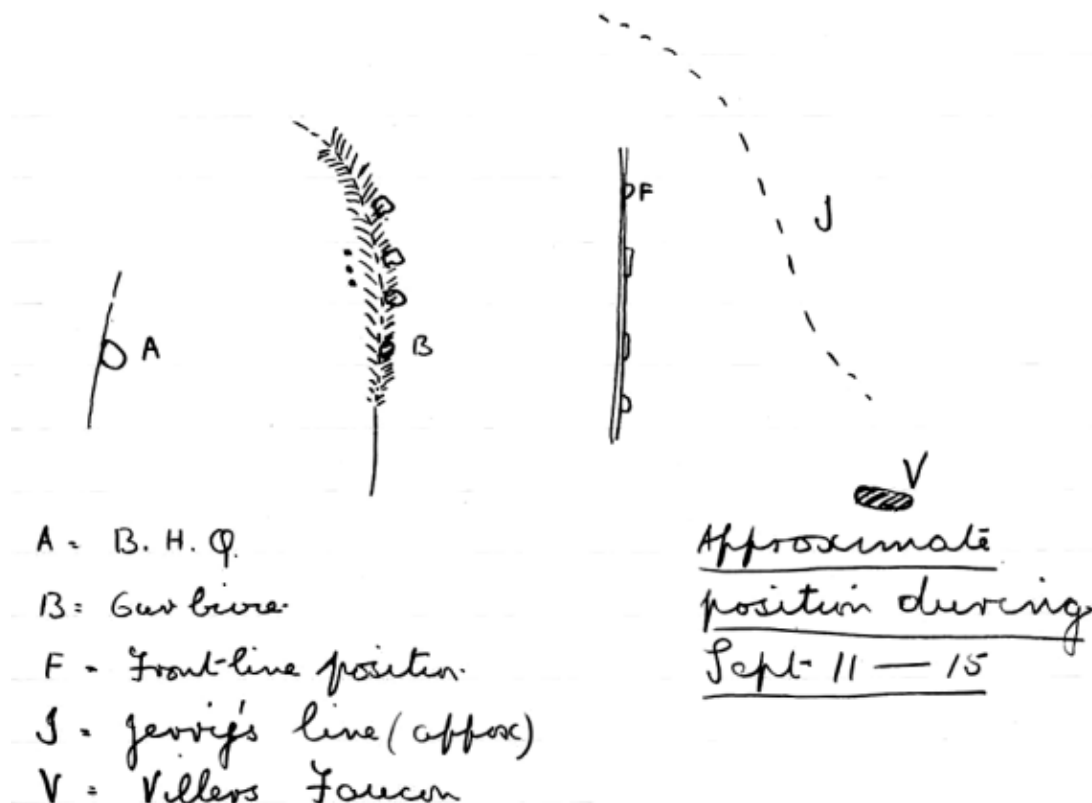 F
J
A
B
V
A = B. H. Q.
B = Our bivvie.
F = Front-line position.
J = Jerry's line (approx)
V = Villers Faucon
Approximate
position during
Sept 11 — 15